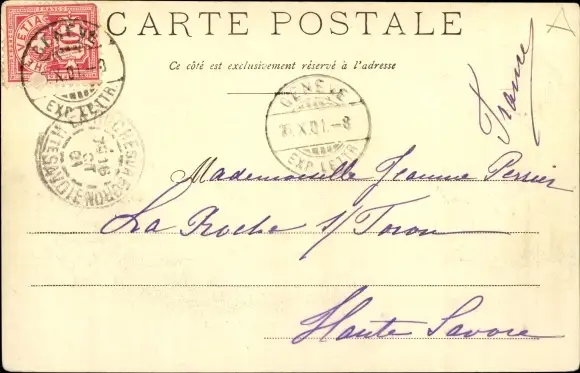 CARTE POSTALE
Ce côté est exclusivement réservé à l'adresse
FRANCO
HELVETIA
10
GENÈVE
X.01.-8
EXP. LETTR.
GENÈVE
X.01.-8
EXP. LETTR.
16
OCT
01
HTE SAVOIE
France
Mademoiselle Jeanne Perrier
La Roche s/ Foron
Haute Savoie